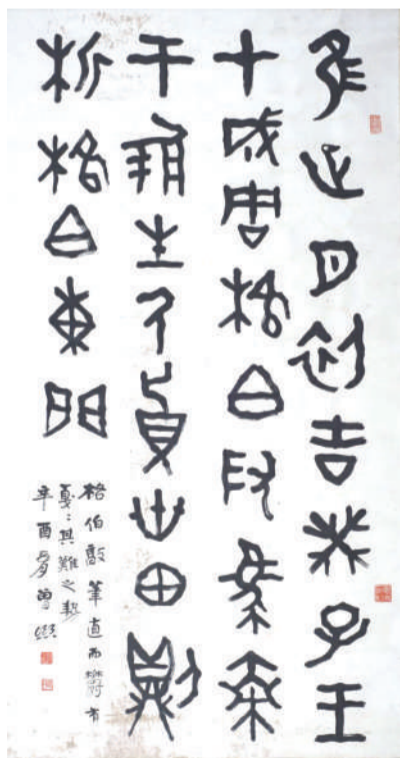 隹正月初吉癸子王
才成周格白馬乘
于倗生氒貯卅田則
析格白東門
格伯敦筆直而鬱有
戛:其難之勢
辛酉夏曾熙